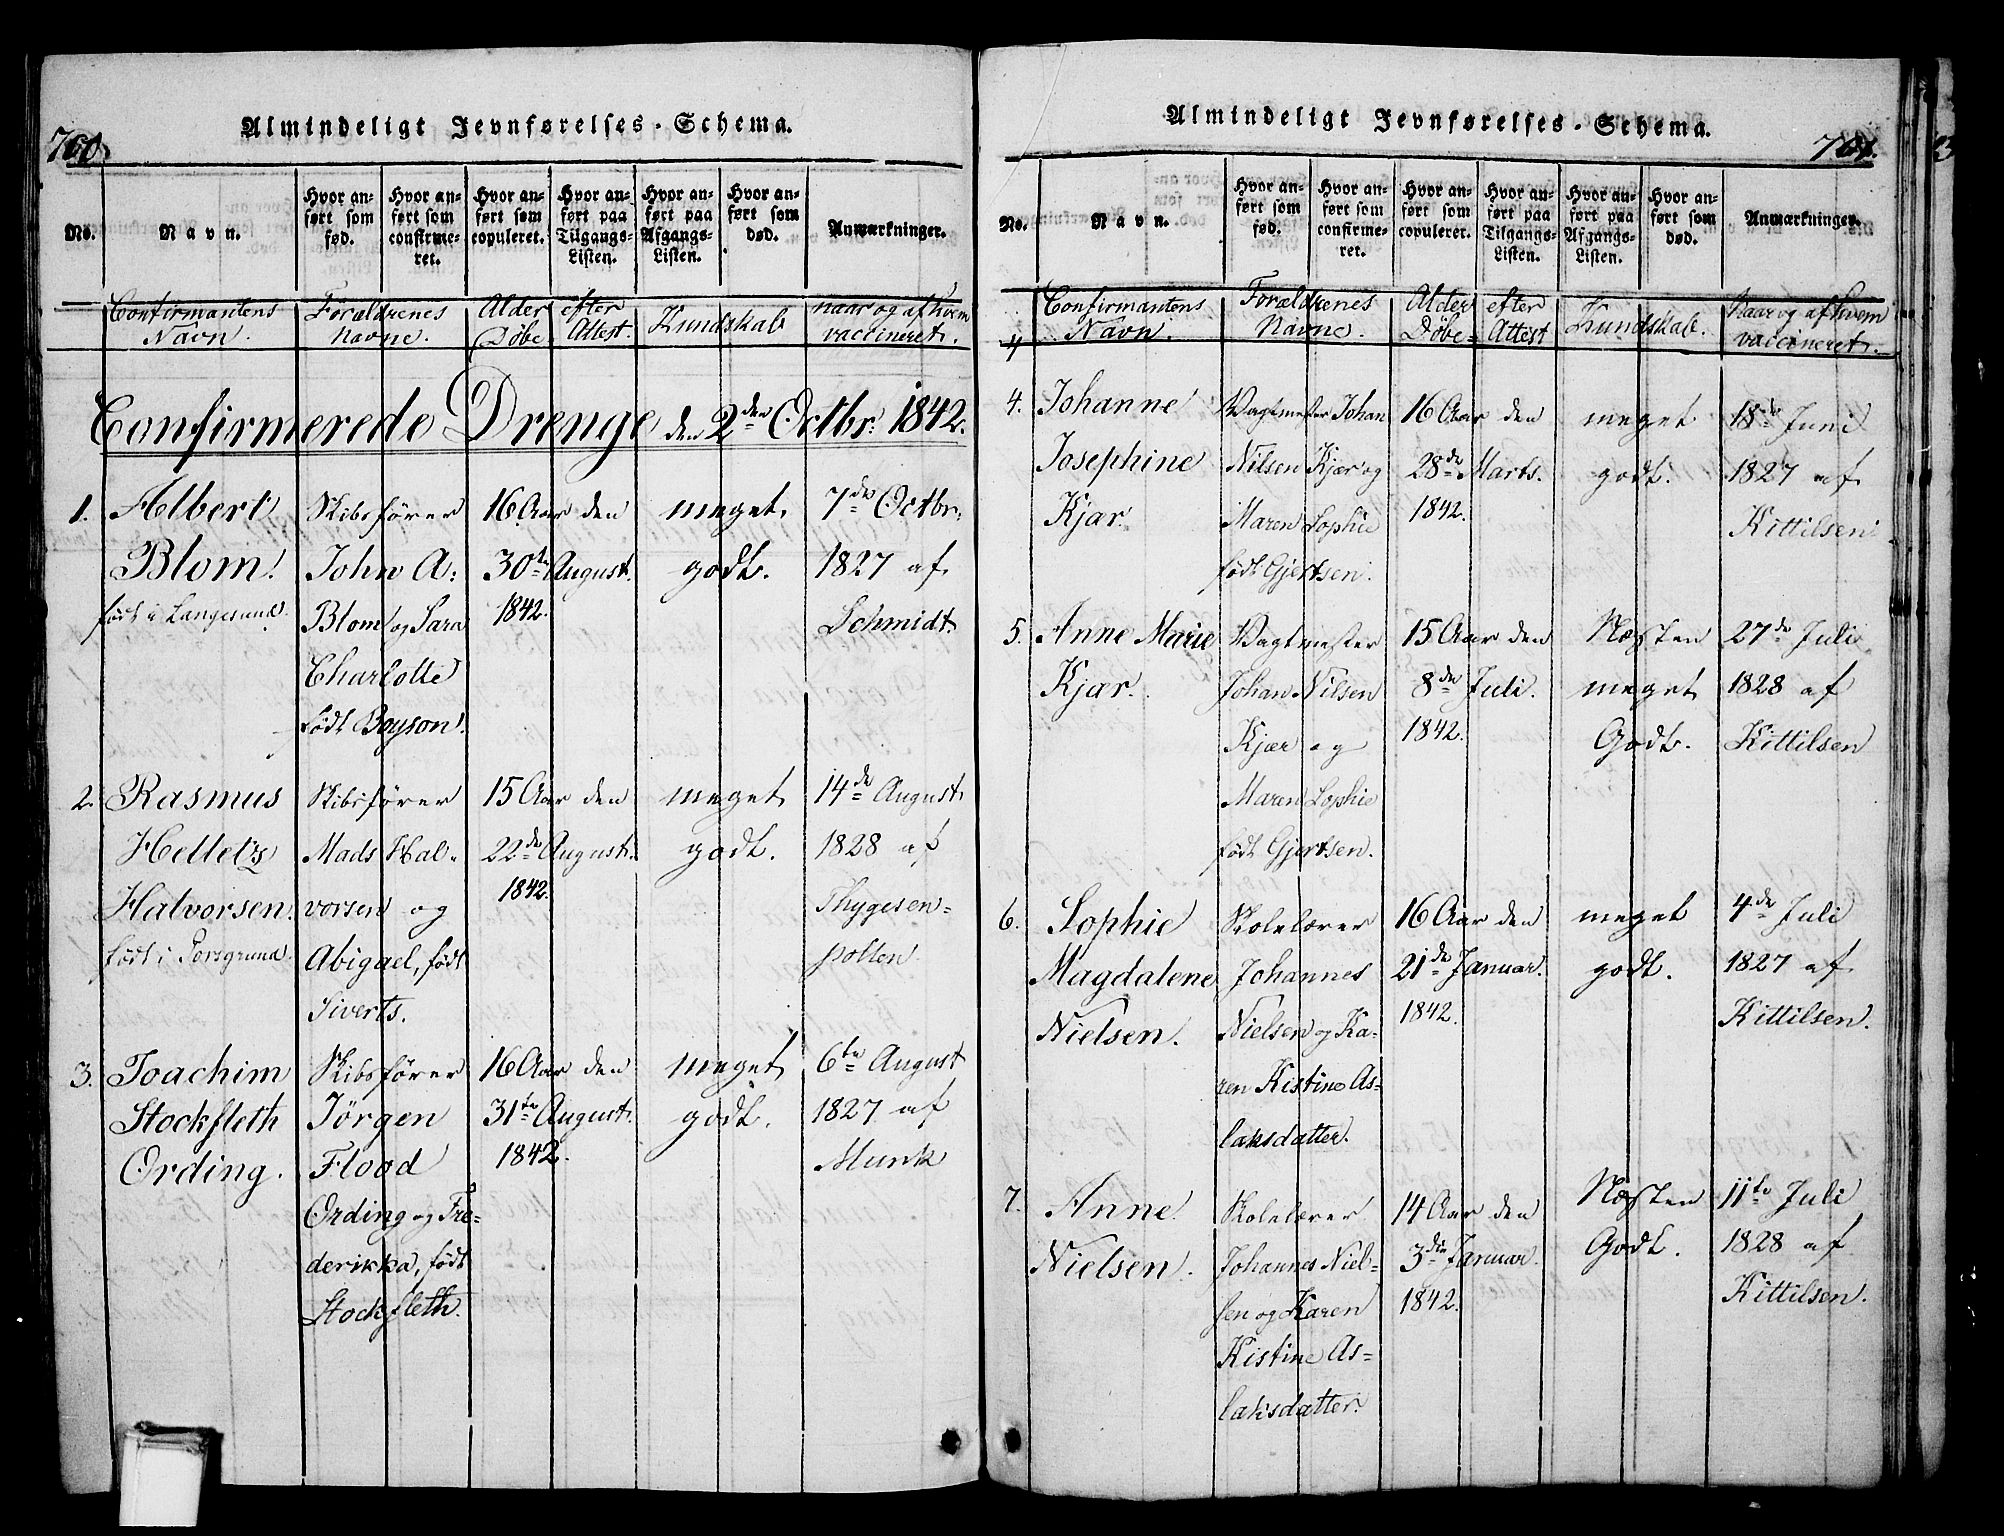 760.
Almindeligt Jevnførelses-Schema.
No.
Navn.
Hvor an-
ført som
fød.
Hvor an-
ført som
confirme-
ret.
Hvor an-
ført som
copuleret.
Hvor an-
ført paa
Tilgangs-
Listen.
Hvor an-
ført paa
Afgangs-
Listen.
Hvor an-
ført som
død.
Anmærkninger.
Confirmantens
Navn.
Forældrenes
Navne.
Alder efter
Døbe-Attest.
Kundskab
naar og af hvem
vaccineret.
Confirmerede Drenge den 2den Octbr: 1842.
1.
Albert
Blom.
født i Langesund.
Skibsfører
John A:
Blom og Sara
Charlotte
født Boyson.
16 Aar den
30te August.
1842.
meget
godt.
7de Octbr:
1827 af
Schmidt.
2.
Rasmus
Hellets
Halvorsen.
født i Porsgrund.
Skibsfører
Mads Hal-
vorsen og
Abigael, født
Siverts.
15 Aar den
22de August.
1842.
meget
godt.
14de August
1828 af
Thygesen-
polten.
3.
Joachim
Stockfleth
Ording.
Skibsfører
Jörgen
Flood
Ording og Fre-
derikka, født
Stockfleth.
16 Aar den
31te August.
1842.
meget
godt.
6te August
1827 af
Munk
761.
Almindeligt Jevnførelses-Schema.
No.
Navn.
Hvor an-
ført som
fød.
Hvor an-
ført som
confirme-
ret.
Hvor an-
ført som
copuleret.
Hvor an-
ført paa
Tilgangs-
Listen.
Hvor an-
ført paa
Afgangs-
Listen.
Hvor an-
ført som
død.
Anmærkninger.
Confirmantens
Navn.
Forældrenes
Navne.
Alder efter
Døbe-Attest
Kundskab.
Naar og af hvem
vaccineret.
4.
Johanne
Josephine
Kjær.
Vagtmester Johan
Nilsen Kjær og
Maren Sophie
født Gjertsen.
16 Aar den
28de Marts.
1842.
meget
godt.
18de Juni
1827 af
Kittilsen
5.
Anne Marie
Kjær.
Vagtmester
Johan Nilsen
Kjær og
Maren Sophie
født Gjertsen.
15 Aar den
8de Juli.
1842.
Næsten
meget
Godt.
27de Juli
1828 af
Kittilsen
6.
Sophie
Magdalene
Nielsen.
Skolelærer
Johannes
Nielsen og Ka-
ren Kistine As-
laksdatter.
16 Aar den
21de Januar.
1842.
meget
godt.
4de Juli
1827 af
Kittilsen.
7.
Anne
Nielsen.
Skolelærer
Johannes Niel-
sen og Karen
Kistine As-
laksdatter.
14 Aar den
3die Januar.
1842.
Næsten
Godt.
11te Juli
1828 af
Kittilsen.